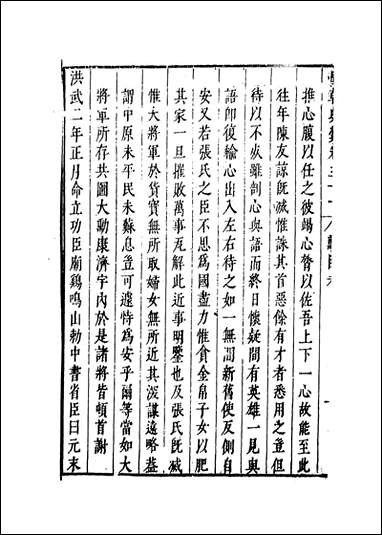 推心腹以任之彼竭心膂以佐吾上下一心故能至此
往年陳友諒旣滅惟誅其首惡餘有才者悉用之並但
待以不疑雖剖心與語而終日懷疑間有英雄一見與
語卽復輸心出入左右待之如一無間新舊使反側自
安又若張氏之臣不思爲國盡力惟貪金帛子女以肥
其家一旦摧敗萬事瓦解此近事明鑒也及張氏旣滅
惟大將軍於貨寶無所取婦女無所近其深謀遠略葢
謂中原未平民未蘇息豈可遽恃爲安乎爾等當如大
將軍所存共圖大勳康濟宇内於是諸將皆頓首謝
洪武二年正月命立功臣廟鷄鳴山勑中書省臣曰元末